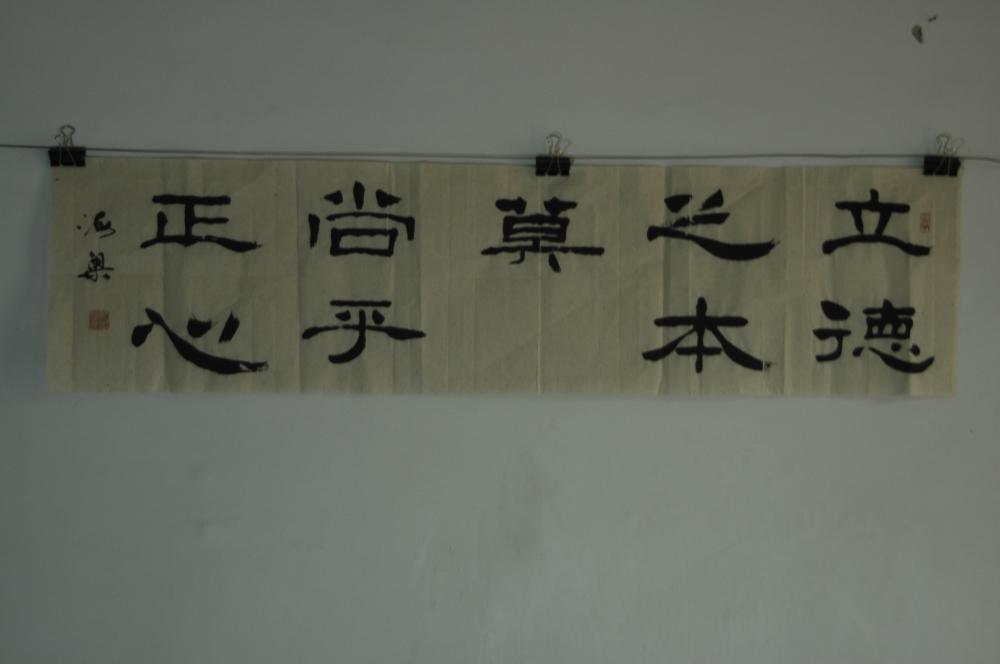 立德
之本
莫
尚乎
正心
海奥